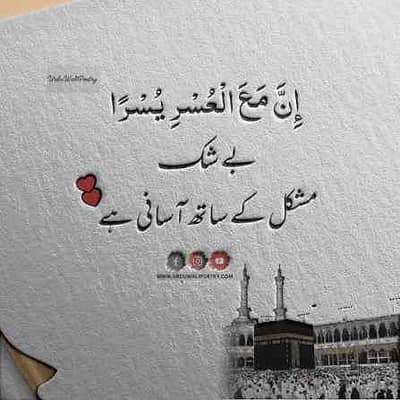 UrduWaliPoetry
إِنَّ مَعَ الْعُسْرِ يُسْرًا
بے شک
مشکل کے ساتھ آسانی ہے
WWW.URDUWALIPOETRY.COM